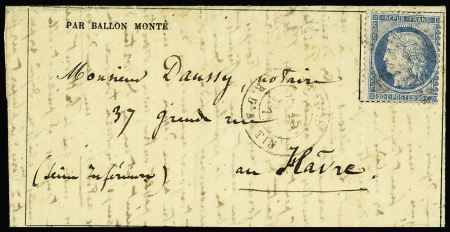 PAR BALLON MONTÉ
REPUB. FRANC.
20 C. POSTES 20 C.
Monsieur Daussy, notaire
37 grande rue
(Seine Inférieure) au Hâvre.